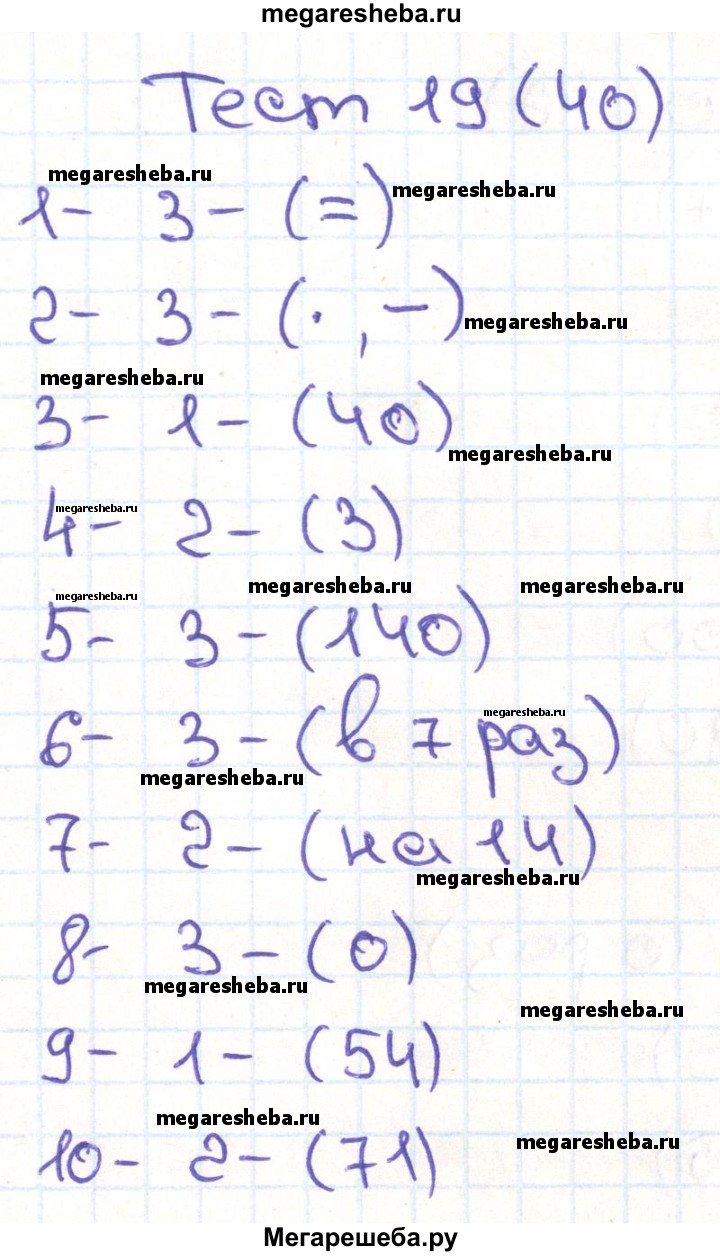 megaresheba.ru
Тест 19 (40)
megaresheba.ru
megaresheba.ru
1- 3- (=)
2- 3- (·,-)
megaresheba.ru
megaresheba.ru
3- 1- (40)
megaresheba.ru
megaresheba.ru
4- 2- (3)
megaresheba.ru megaresheba.ru
megaresheba.ru
5- 3- (140)
megaresheba.ru
6- 3- (в 7 раз)
megaresheba.ru
7- 2- (на 14)
megaresheba.ru
8- 3- (0)
megaresheba.ru
megaresheba.ru
9- 1- (54)
megaresheba.ru
megaresheba.ru
10- 2- (71)
Мегарешеба.ру